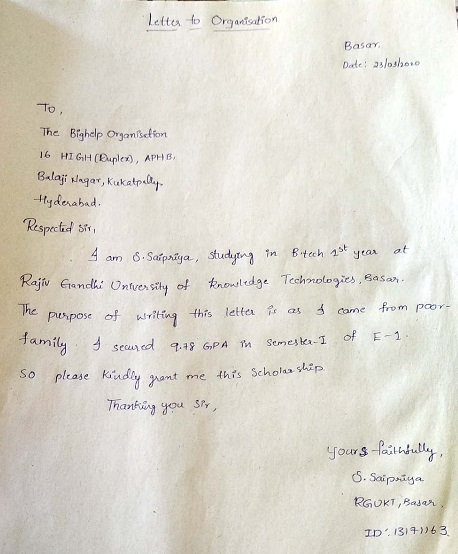 Letter to Organisation
Basar.
Date: 23/03/2020
To,
The Bighelp Organisation
16 HIGH (Duplex), APHB,
Balaji Nagar, Kukatpally.
Hyderabad.
Respected Sir,
I am S. Saipriya, studying in B.tech 1st year at
Rajiv Gandhi University of Knowledge Technologies, Basar.
The purpose of writing this letter is as I came from poor-
family. I secured 9.78 GPA in Semester-I of E-1.
So please kindly grant me this Scholarship
Thanking you Sir,
yours faithfully,
S. Saipriya
RGUKT, Basar.
ID: 13171163.